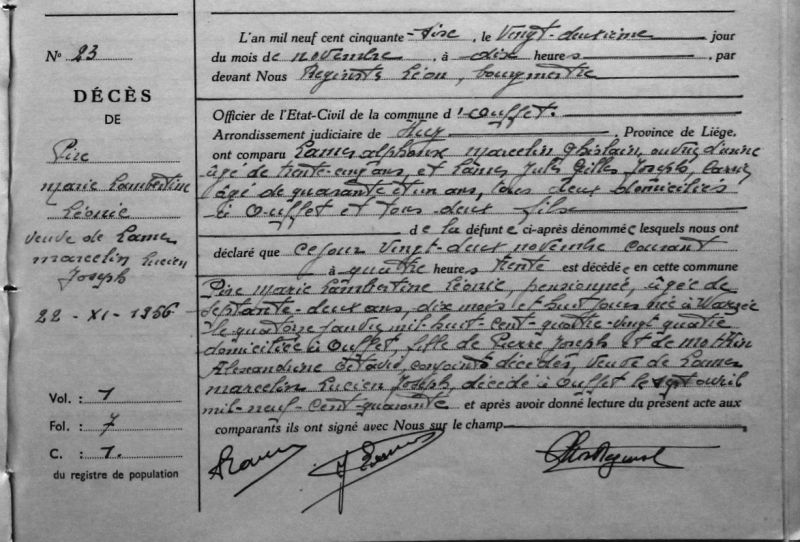 N° 23
DÉCÈS
DE
Pire
Marie Lambertine
Léonie
veuve de Lamer
Marcelin Lucien
Joseph
22 - XI - 1956
Vol. : 1
Fol. : 7
C. : 1.
du registre de population
L'an mil neuf cent cinquante-six, le vingt-deuxième jour
du mois de novembre, à dix heures, par
devant Nous Reginster Léon, bourgmestre
Officier de l'Etat-Civil de la commune d'Ouffet.
Arrondissement judiciaire de Huy, Province de Liége,
ont comparu Lamer Alphonse Marcelin Ghislain, ouvrier d'usine
âgé de trente-cinq ans, et Lamer Jules Gilles Joseph,
âgé de quarante et un ans, tous deux domiciliés
à Ouffet et tous deux fils
de la défunte ci-après dénommée lesquels nous ont
déclaré que ce jour vingt-deux novembre courant
à quatre heures trente est décédée en cette commune
Pire Marie Lambertine Léonie, pensionnée, âgée de
septante-deux ans, dix mois et huit jours née à Warzée
le quatorze janvier mil-huit-cent-quatre-vingt quatre
domiciliée à Ouffet, fille de Pierre Joseph et de Mothin
Alexandrine Octavie, conjoints décédés, veuve de Lamer
Marcelin Lucien Joseph, décédé à Ouffet le sept avril
mil-neuf-cent-quarante et après avoir donné lecture du présent acte aux
comparants ils ont signé avec Nous sur le champ